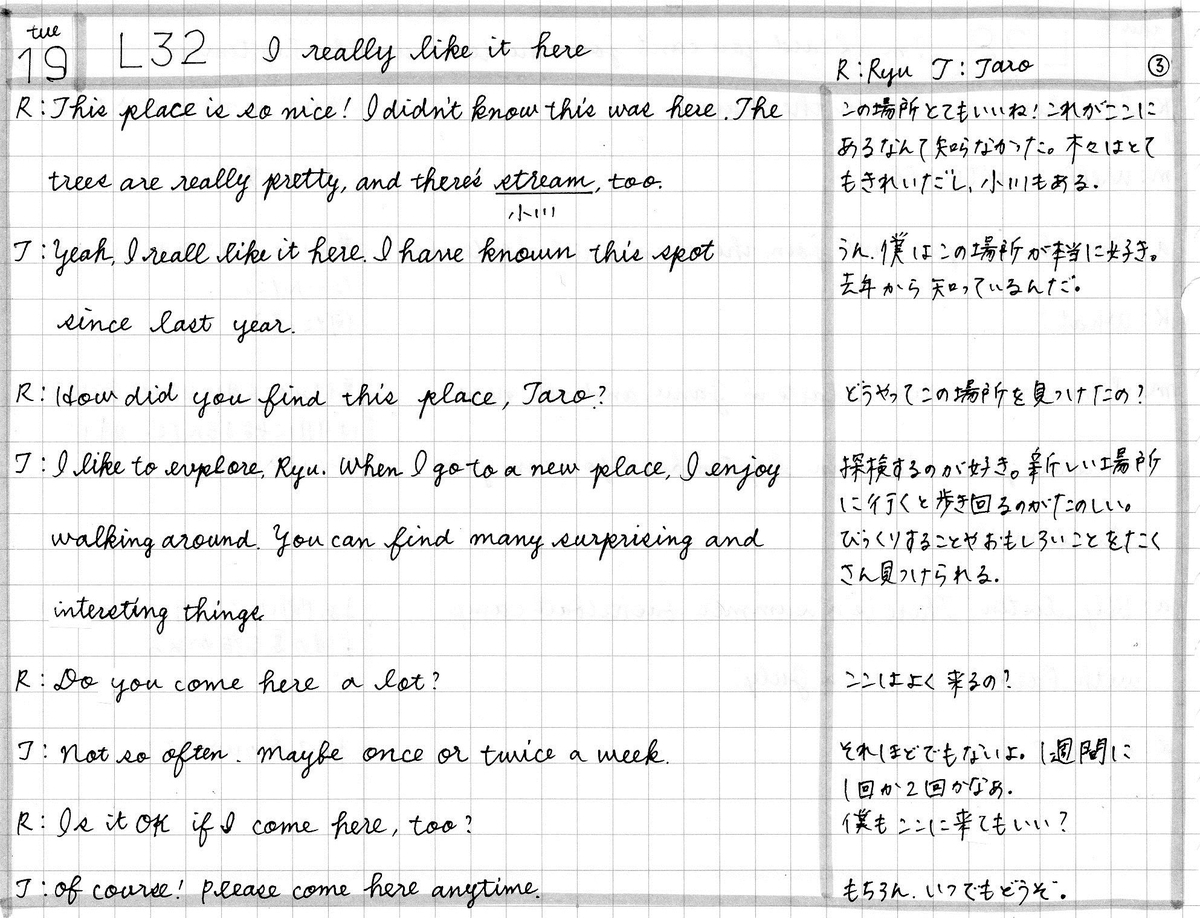 tue
19
L32 I really like it here
R:Ryu T:Taro ③
R:This place is so nice! I didn't know this was here. The
trees are really pretty, and there's stream, too.
小川
T:Yeah, I reall like it here. I have known this spot
since last year.
R:How did you find this place, Taro?
T:I like to explore, Ryu. When I go to a new place, I enjoy
walking around. You can find many surprising and
intersting things.
R:Do you come here a lot?
T:Not so often. Maybe once or twice a week.
R:Is it OK if I come here, too?
T:of course! Please come here anytime.
この場所とてもいいね!これがここに
あるなんて知らなかった。木々はとて
もきれいだし、小川もある.
うん.僕はこの場所が本当に好き。
去年から知っているんだ。
どうやってこの場所を見つけたの?
探検するのが好き。新しい場所
に行くと歩き回るのがたのしい。
びっくりすることやおもしろいことをたく
さん見つけられる.
ここはよく来るの?
それほどでもないよ。1週間に
1回か2回かなあ.
僕もここに来てもいい?
もちろん.いつでもどうぞ。